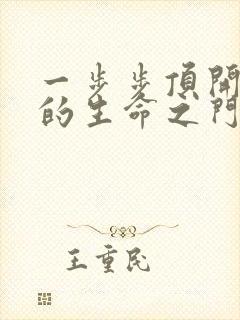 一步步頂開
的生命之門
王重民